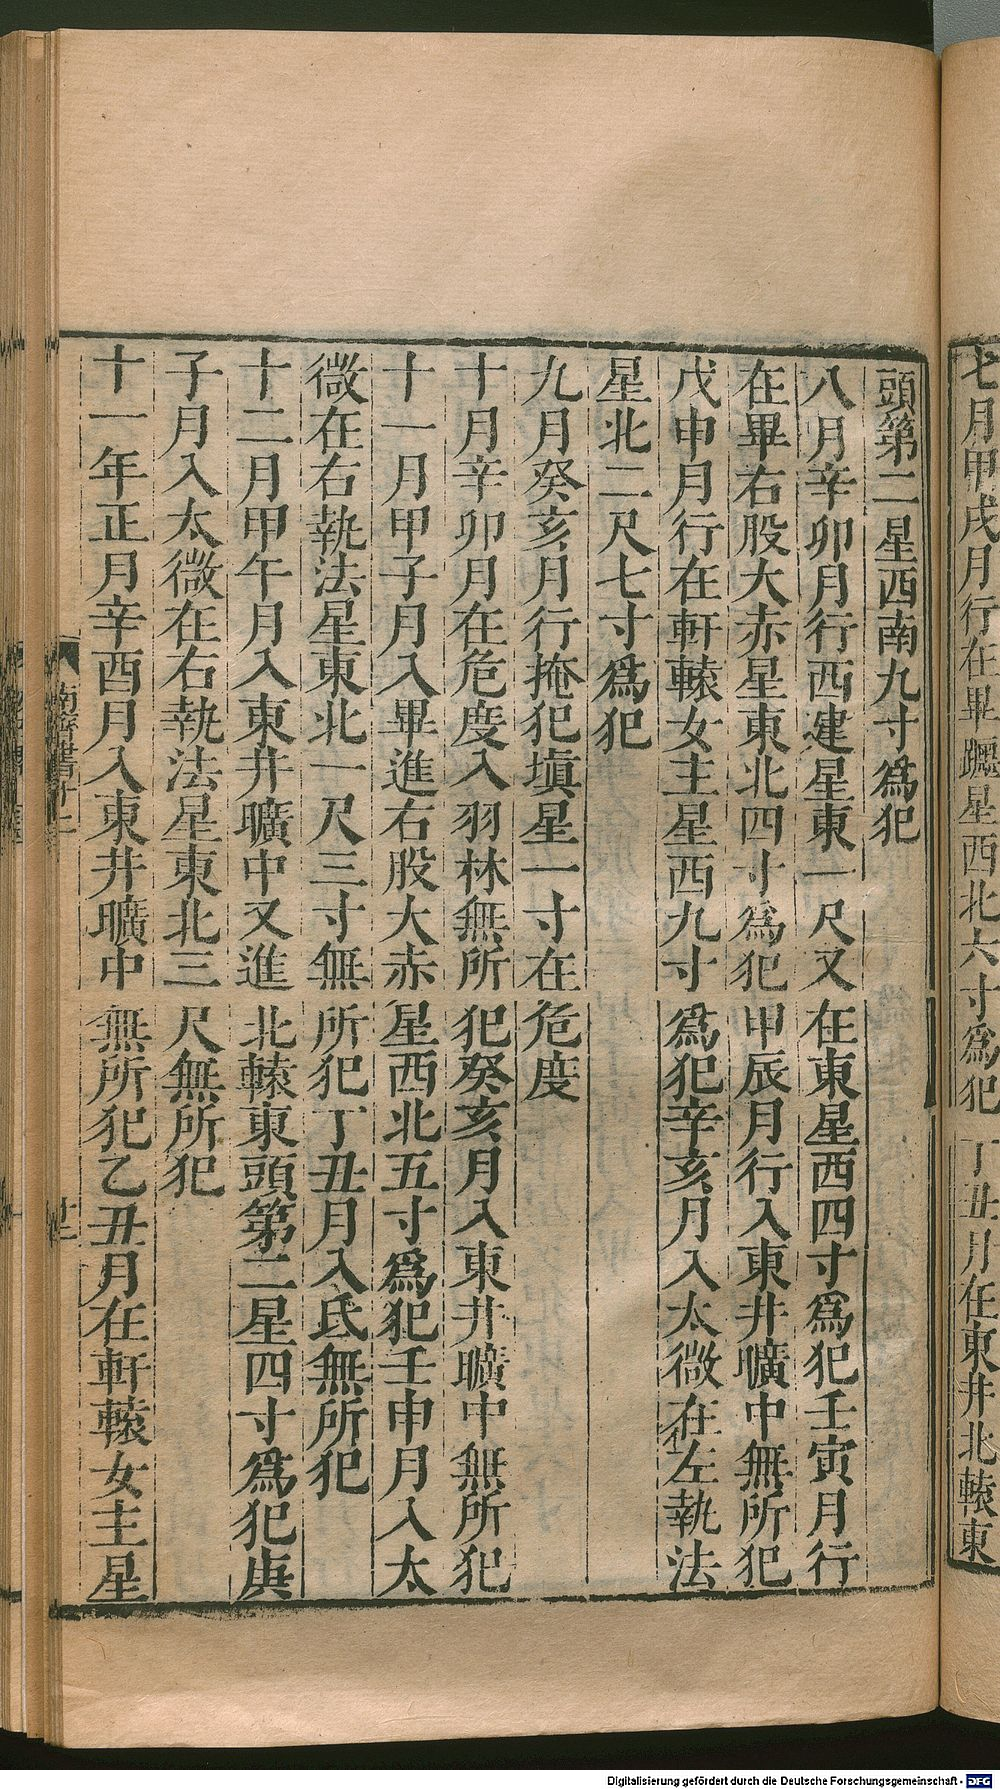 七月甲戌月行在畢躔星西北六寸爲犯丁丑月在東井北轅東
頭第二星西南九寸爲犯
八月辛卯月行西建星東一尺又在東星西四寸爲犯壬寅月行
在畢右股大赤星東北四寸爲犯甲辰月行入東井曠中無所犯
戊申月行在軒轅女主星西九寸爲犯辛亥月入太微在左執法
星北二尺七寸爲犯
九月癸亥月行掩犯塡星一寸在危度
十月辛卯月在危度入羽林無所犯癸亥月入東井曠中無所犯
十一月甲子月入畢進右股大赤星西北五寸爲犯壬申月入太
微在右執法星東北一尺三寸無所犯丁丑月入氐無所犯
十二月甲午月入東井曠中又進北轅東頭第二星四寸爲犯庚
子月入太微在右執法星東北三尺無所犯
十一年正月辛酉月入東井曠中無所犯乙丑月在軒轅女主星
南齊書十二
Digitalisierung gefördert durch die Deutsche Forschungsgemeinschaft - DFG